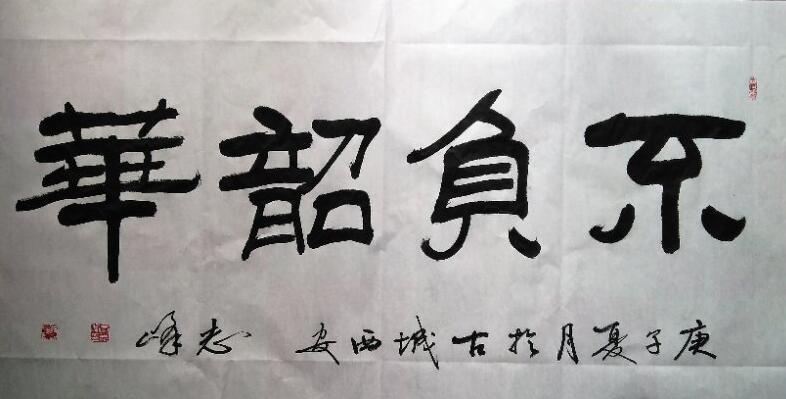 不負韶華
庚子夏月於古城西安 志峰